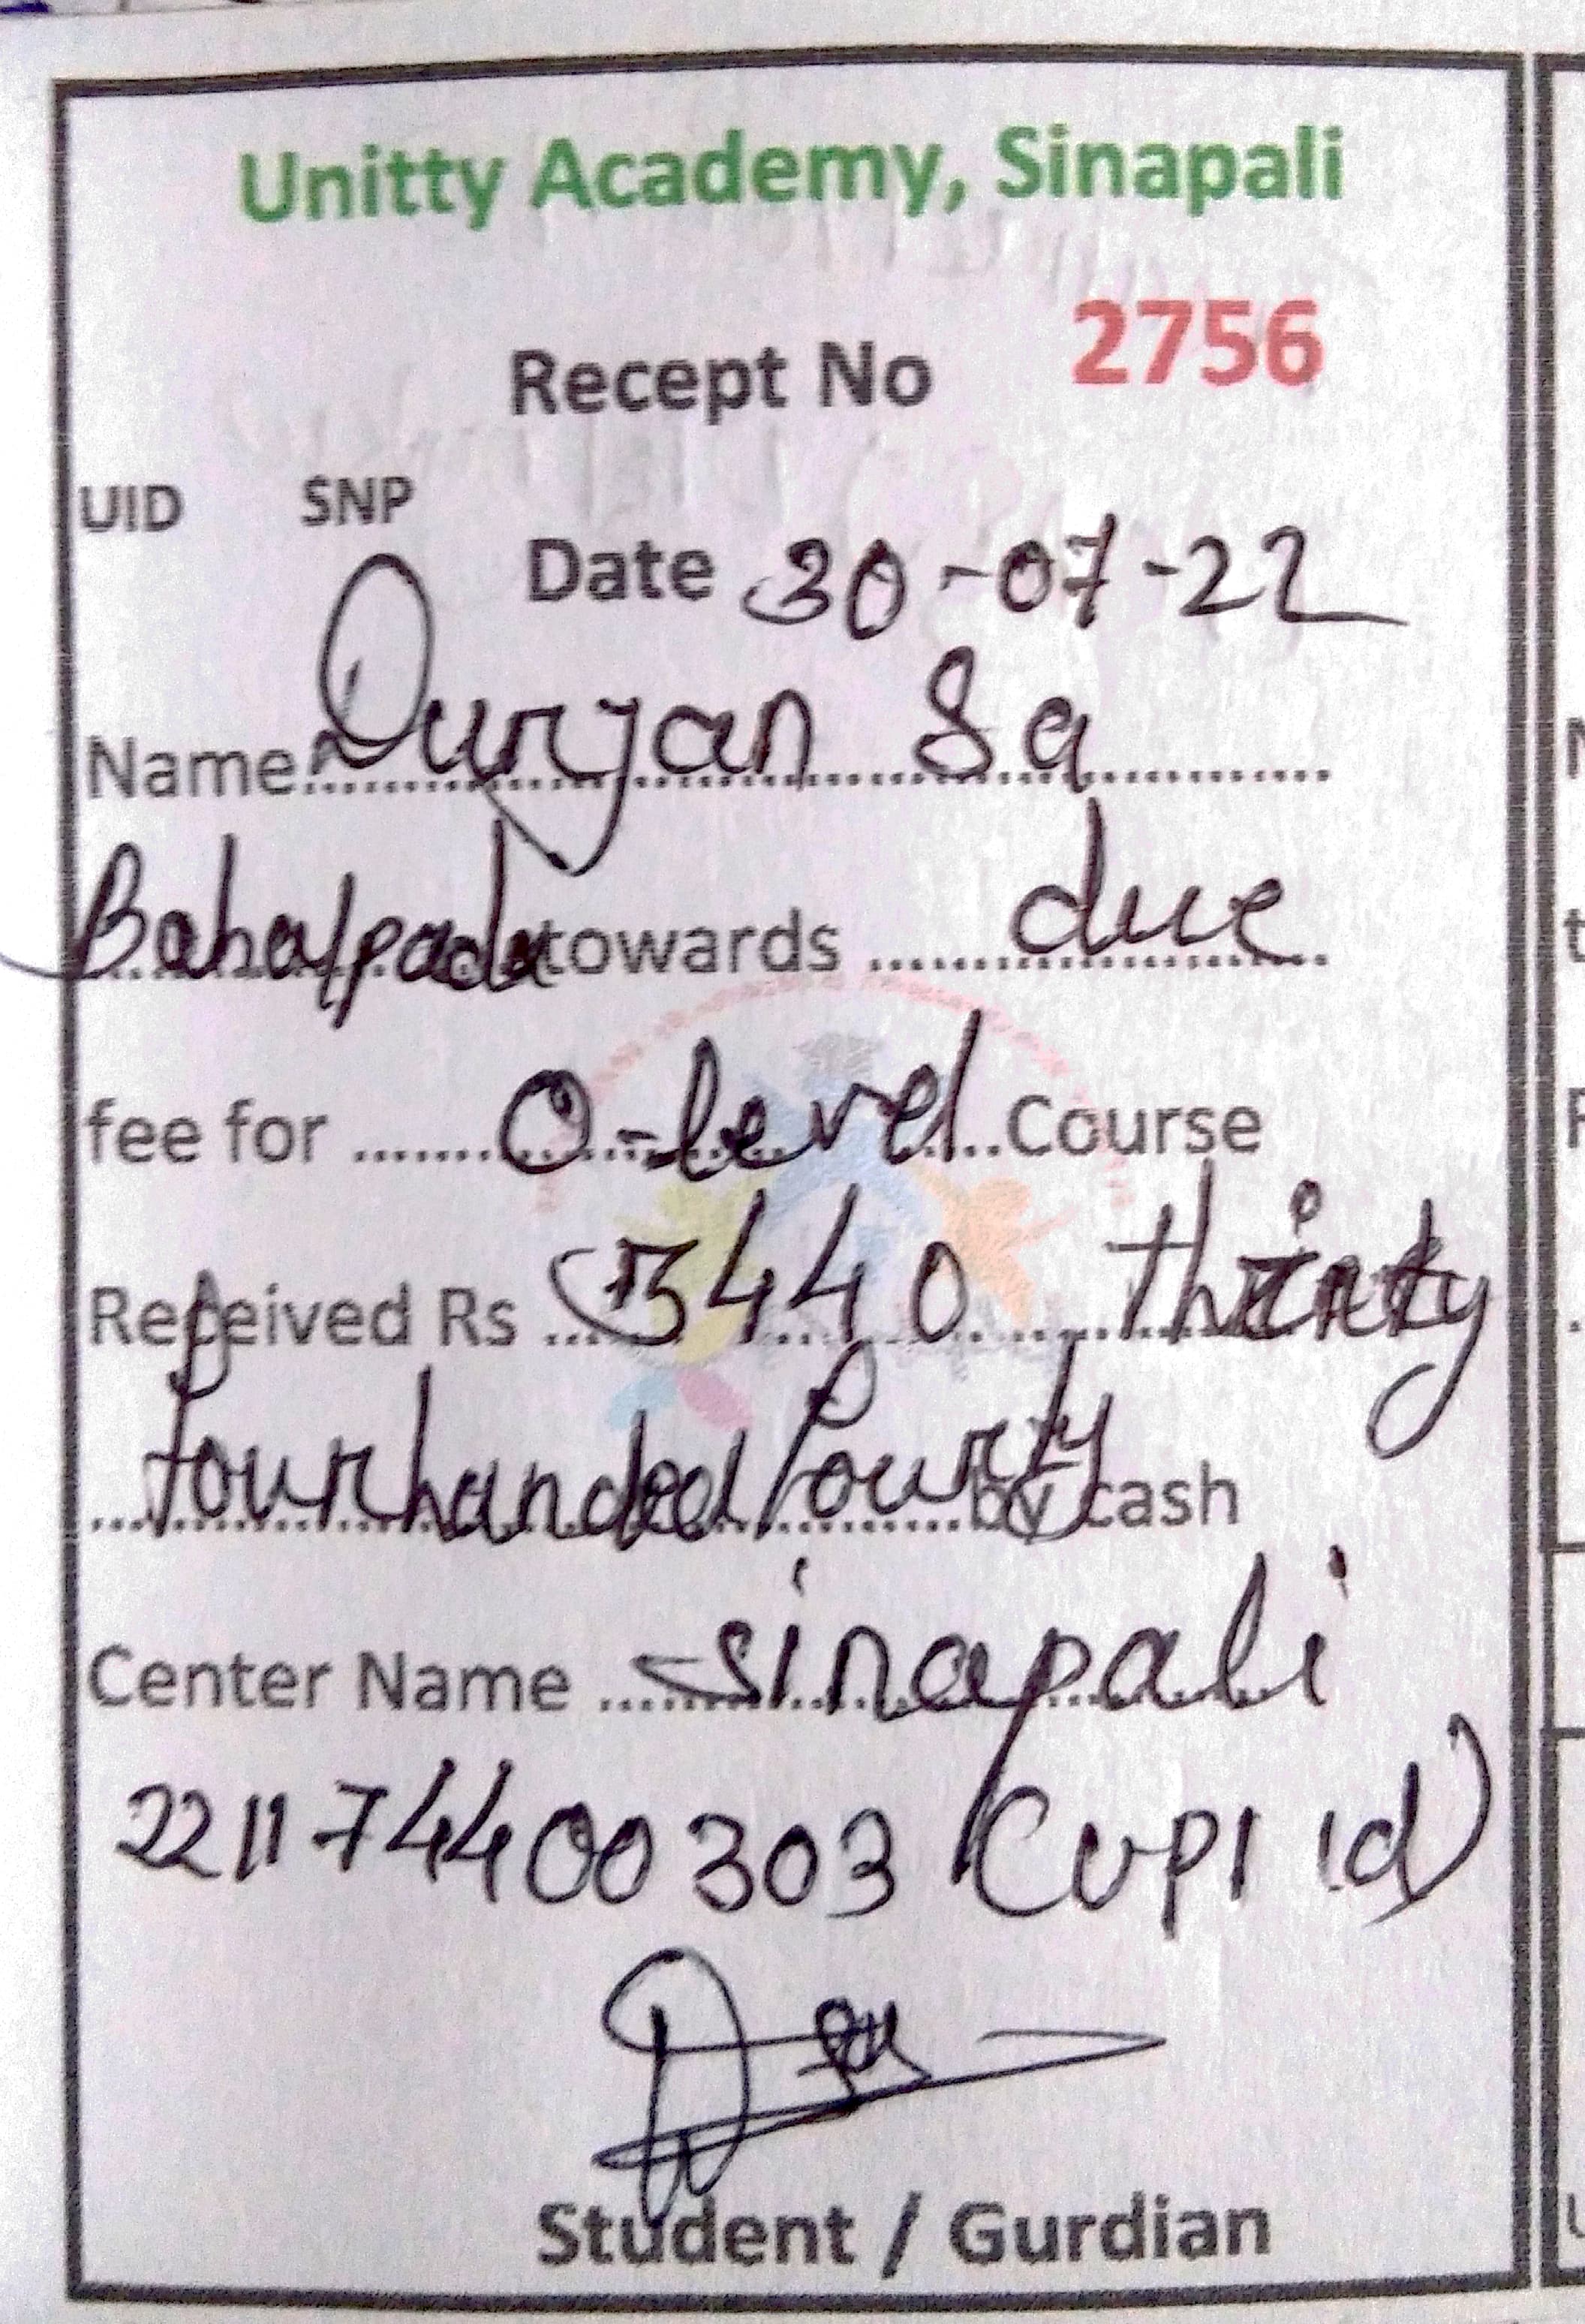 Unitty Academy, Sinapali
Recept No 2756
UID SNP
Date 30-07-22
Name Durjan Sa
Bahalpada towards due
fee for O-level Course
Received Rs 3440 thirty
four handed fourty by cash
Center Name sinapali
221174400303 (UPI id)
Student / Gurdian